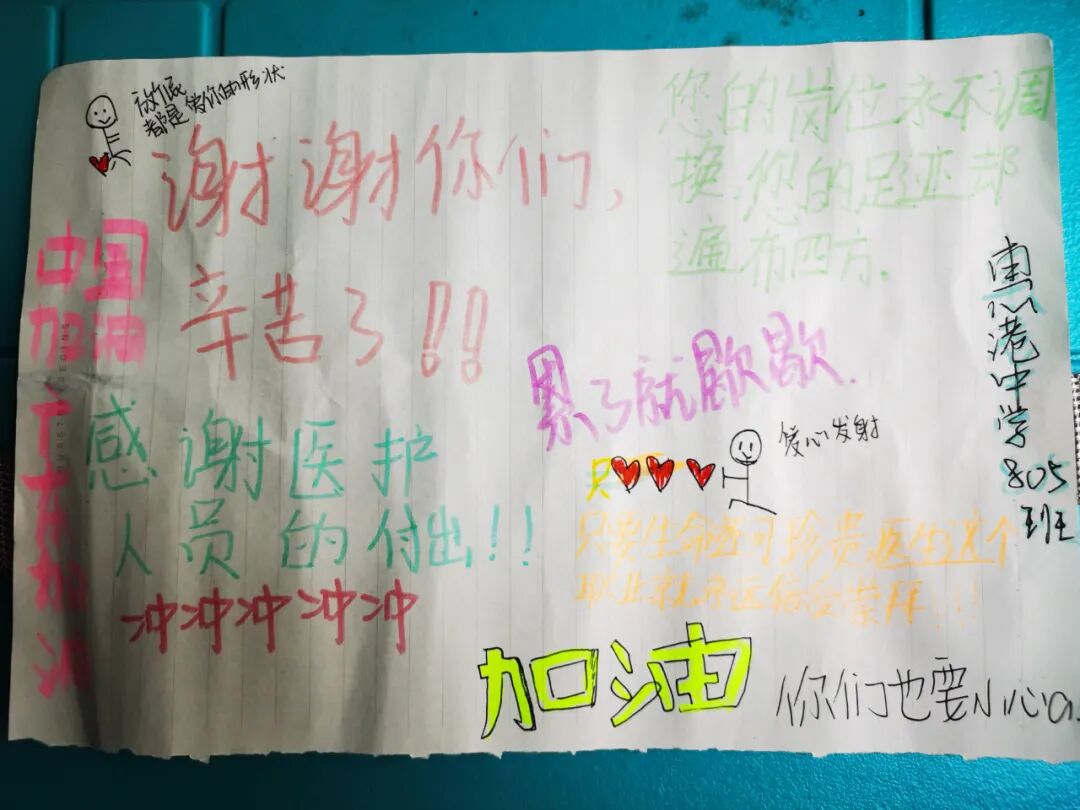 都是爱你的形状
谢谢你们,
辛苦了!!
您的岗位永不调
换,您的足迹却
遍布四方.
中国
加油
广东加油
惠港中学
805
班
累了就歇歇.
爱心发射
感谢医护
人员的付出!!
只
只要生命还可珍贵,医生这个
职业就永远倍受崇拜!!!
冲冲冲冲冲
加油
你们也要小心a.